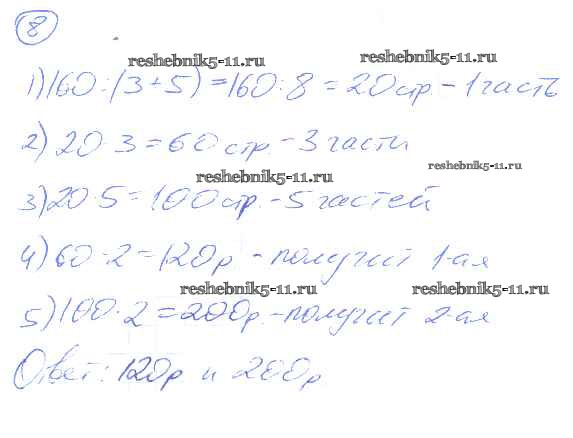 8
reshebnik5-11.ru reshebnik5-11.ru
1) 160 : (3 + 5) = 160 : 8 = 20 стр. - 1 часть
2) 20 · 3 = 60 стр. - 3 части
reshebnik5-11.ru reshebnik5-11.ru
3) 20 · 5 = 100 стр. - 5 частей
4) 60 · 2 = 120р - получит 1-ая
reshebnik5-11.ru reshebnik5-11.ru
5) 100 · 2 = 200р. - получит 2-ая
Ответ: 120р. и 200р